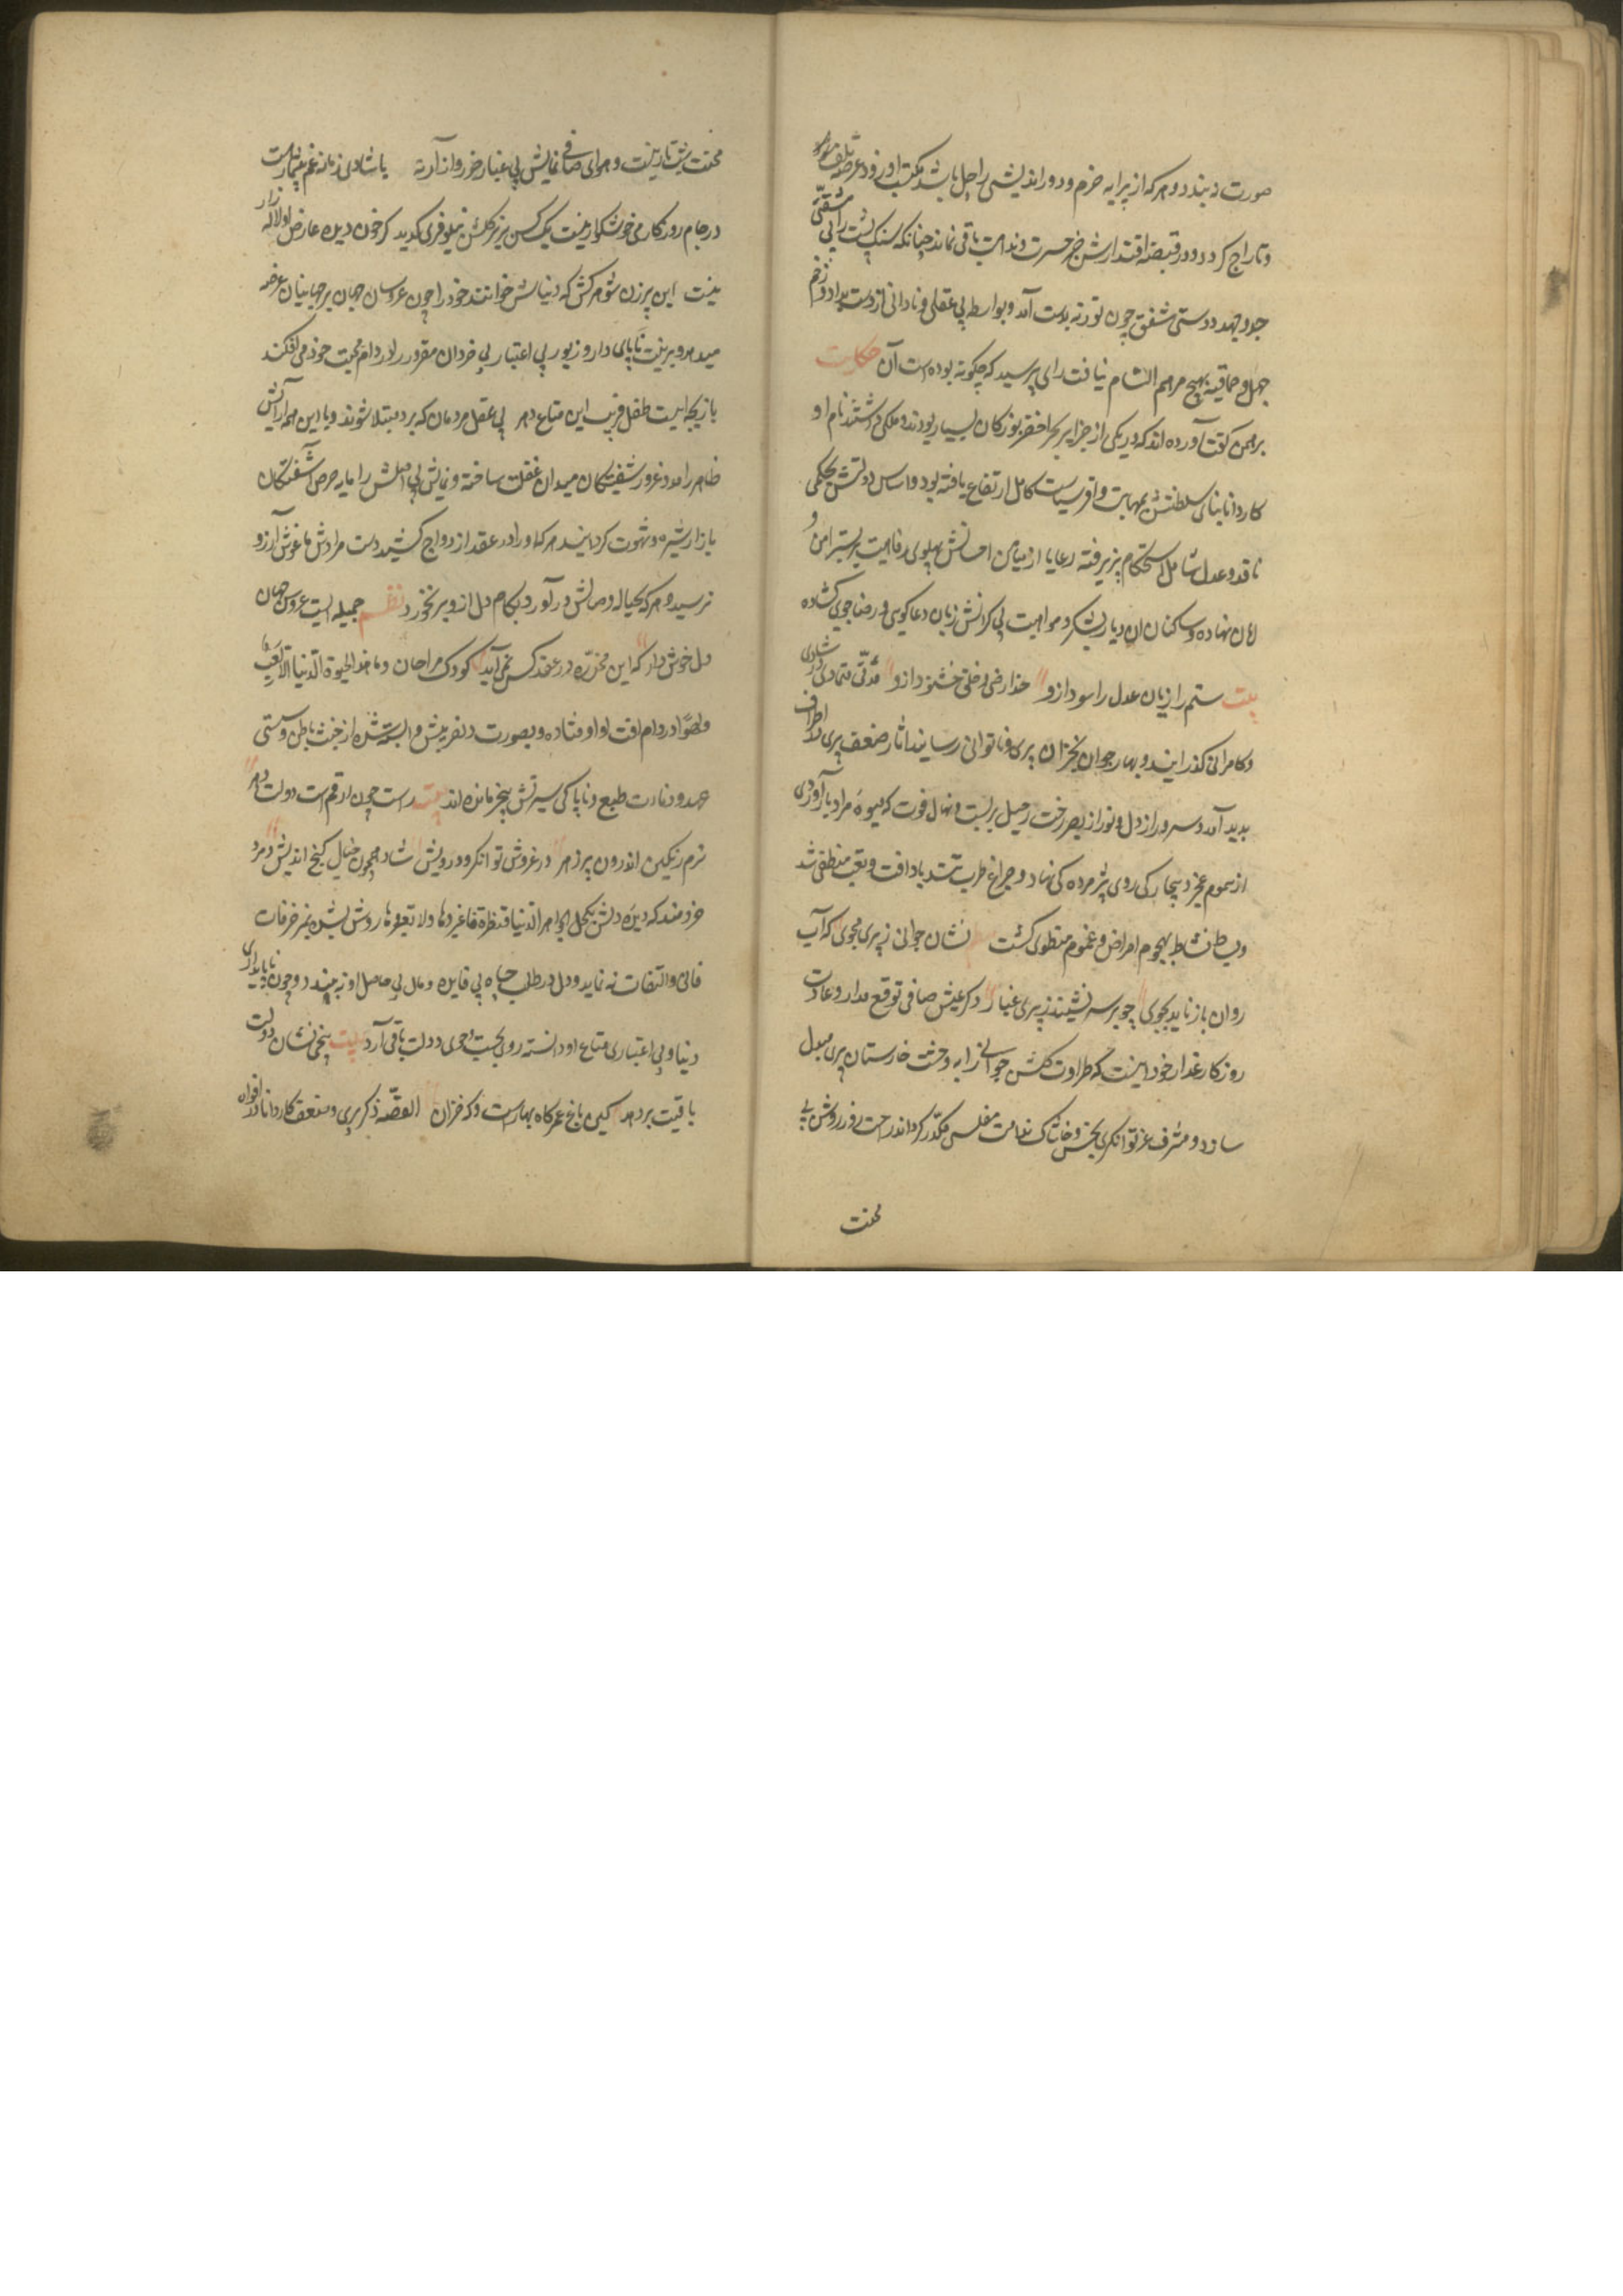 صورت نه بندد و هر که از پیرایه حزم و دور اندیشی راجل باشد مکتب او زود عرصهٔ تلف شود
و تاراج کردد و در قبضهٔ اقتدارش جز حسرت و ندامت باقی نماند چنانکه سنک پشت را بی مشقتی
جد و جهد دوستی مشفق چون بوزنه بدست آمد و بواسطه بی عقلی و نادانی از دست بداد و زخم
جهل و حماقتش بهیچ مرهم التیام نیافت رای پرسید که چکونه بوده است آن حکایت
برهمن کفت آورده اند که در یکی از جزایر بحر اخضر بوزکان بسیار بودند و ملکی داشتند نام او
کاردانا بنای سلطنتش بمهابت وافر و سیاست کامل ارتفاع یافته بود و اساس دولتش بحکمی
نافد و عدل شامل استحکام پزیرفته رعایا از میامن احسانش پهلوی رفاهیت بر بستر امن و
امان نهاده و ساکنان ان دیار بشکر و مواهبت بی کرانش زبان دعا کوی و رضا جوی کشاده
بیت ستم را زیان عدل را سود ازو خدا راضی و خلق خشنود ازو مدّتی متمادی در شادی
و کامرانی کذرانید و بهار جوانی بخزان پیری و ناتوانی رسانید اثار ضعف پیری در اطراف
بدید آمد و سرور از دل و نور از بصر رخت رحیل بر بست و نهال قوت که میوهٔ مراد بار آوردی
از سموم عجز و بیچارکی روی پژمرده کی نهاد و چراغ طرب بتند باد افت و تعب منطفی شد
و بساط نشاط بهجوم امراض و غموم منطوی کشت نظم نشان جوانی ز پیری مجوی که آب
روان باز ناید بجوی چو بر سر نشیند ز پیری غبار دکر عیش صافی توقع مدار و عادت
روزکار غدار خود اینست که طراوت کلشن جوانی را به وحشت خارستان پیری مبدل
سازد و مشرف عز توانکری بخس و خاشاک ندامت مفلسی مکدّر کرداند راحت روز روشن بی
محنت
محنت شب تار نیست و هوای صافی نمایش بی غبار ضرر و از آر نه با شادی زمانه غم بیشمار است
در جام روزکار می خوشکوار نیست یک کس بزیر کلشن نیلوفری که دید کز خون دیده عارض او لاله زار
نیست این پیر زن شوهر کش که دنیاش خوانند خود را چون عروسان جهان بر جهانیان عرضه
میدهد و بزینت ناپای دار و زیور بی اعتبار بی خردان مغرور را در دام محبت خود می افکند
بازیچه ایست طفل فریب این متاع دهر بی عقل مردمان که بر او مبتلا شوند و با این همه آرایش
ظاهر را مدد غرور شیفتکان میدان غفلت ساخته و نمایش بی اصلش را مایه حرص آشفتکان
بازار شره و شهوت کردانید هر که او را در عقد ازدواج کشید دست مرادش باغوش آرزو
نرسید و هر که بحباله وصالش در آورد بکام دل از و بر نخورد نظم جمیله ایست عروس جهان
دل خوش دار که این مخدّره در عقد کس نمی آید کودک مزاجان و ما هذا الحیوة الدّنیا الّا لَعِبٌ
و لهوٌ در دام افت او اوفتاده و بصورت دلفریبش وابسته شده از خبث باطن و سستی
عهد و دنائت طبع و ناپاکی سیرتش بیخبر مانده اند بیت راست چون ارقم است دولت دهر
نرم رنکین اندرون پر زهر در غروش توانکر و درویش شاد همچون خیال کنج اندیش و مرد
خردمند که دیدهٔ دلش بکحل الجواهر الدّنیا قنطرة فاعبروها ولا تعمروها روشن شده بمزخرفات
فانی و التفات نه نماید و دل در طلب جاه بی فایده و مال بی حاصل او نه بندد و چون ناپایداری
دنیا و بی اعتباری متاع او دانسته روی بجست و جوی دولت باقی آرد بیت بیخی نشان که دولت
باقیت بر دهد کین باغ عمر کاه بهار است و که خزان القصّه ذکر پیری و ضعف کاردانا در افواه